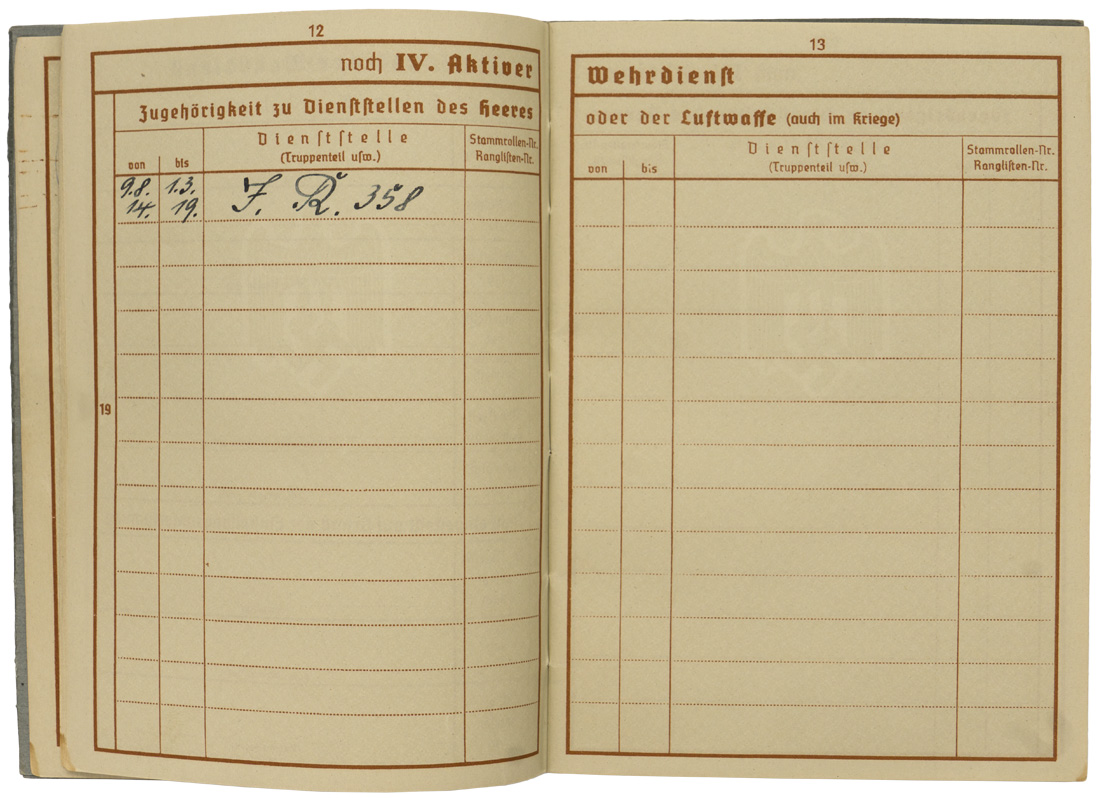 12
noch IV. Aktiver
Zugehörigkeit zu Dienststellen des Heeres
von
bis
Dienststelle
(Truppenteil usw.)
Stammrollen-Nr.
Ranglisten-Nr.
9.8. 1.3. J. R. 358
14. 19.
19
13
Wehrdienst
oder der Luftwaffe (auch im Kriege)
von
bis
Dienststelle
(Truppenteil usw.)
Stammrollen-Nr.
Ranglisten-Nr.